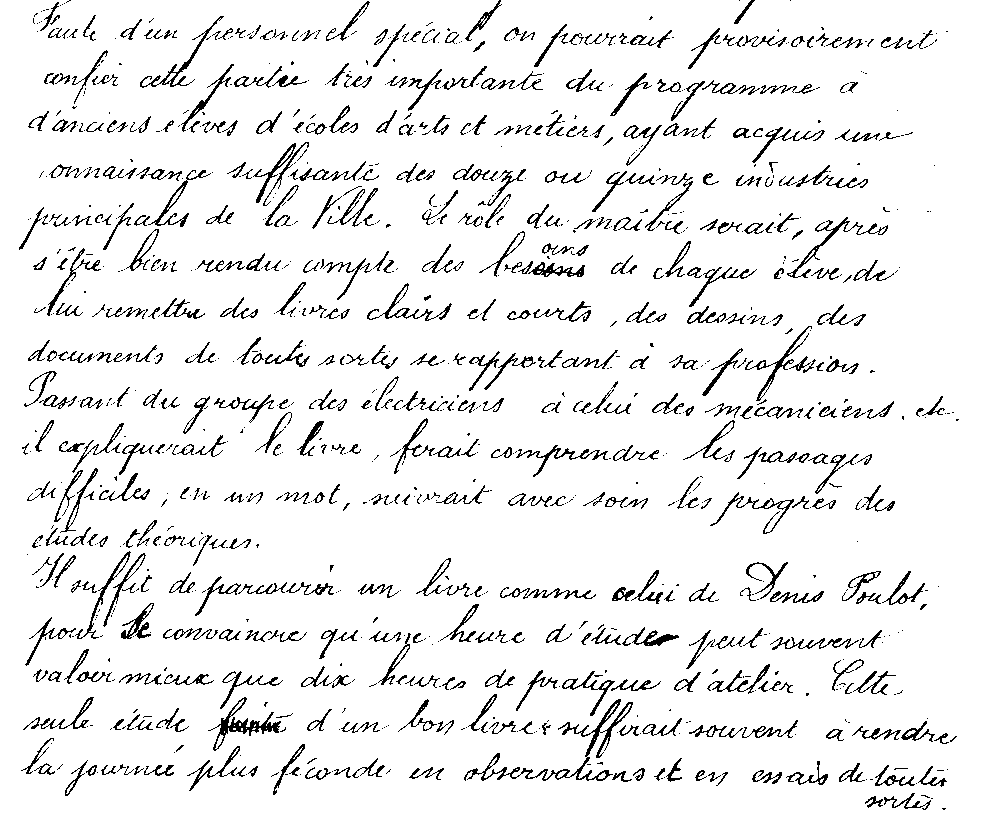 Faute d'un personnel spécial, on pourrait provisoirement
confier cette partie très importante du programme à
d'anciens élèves d'écoles d'arts et métiers, ayant acquis une
connaissance suffisante des douze ou quinze industries
principales de la Ville. Le rôle du maître serait, après
s'être bien rendu compte des besoins de chaque élève, de
lui remettre des livres clairs et courts, des dessins, des
documents de toutes sortes se rapportant à sa profession.
Passant du groupe des électriciens à celui des mécaniciens. etc.
il expliquerait le livre, ferait comprendre les passages
difficiles, en un mot, suivrait avec soin les progrès des
études théoriques.
Il suffit de parcourir un livre comme celui de Denis Poulot,
pour se convaincre qu'une heure d'étude peut souvent
valoir mieux que dix heures de pratique d'atelier. Cette
seule étude d'un bon livre suffirait souvent à rendre
la journée plus féconde en observations et en essais de toutes
sortes.